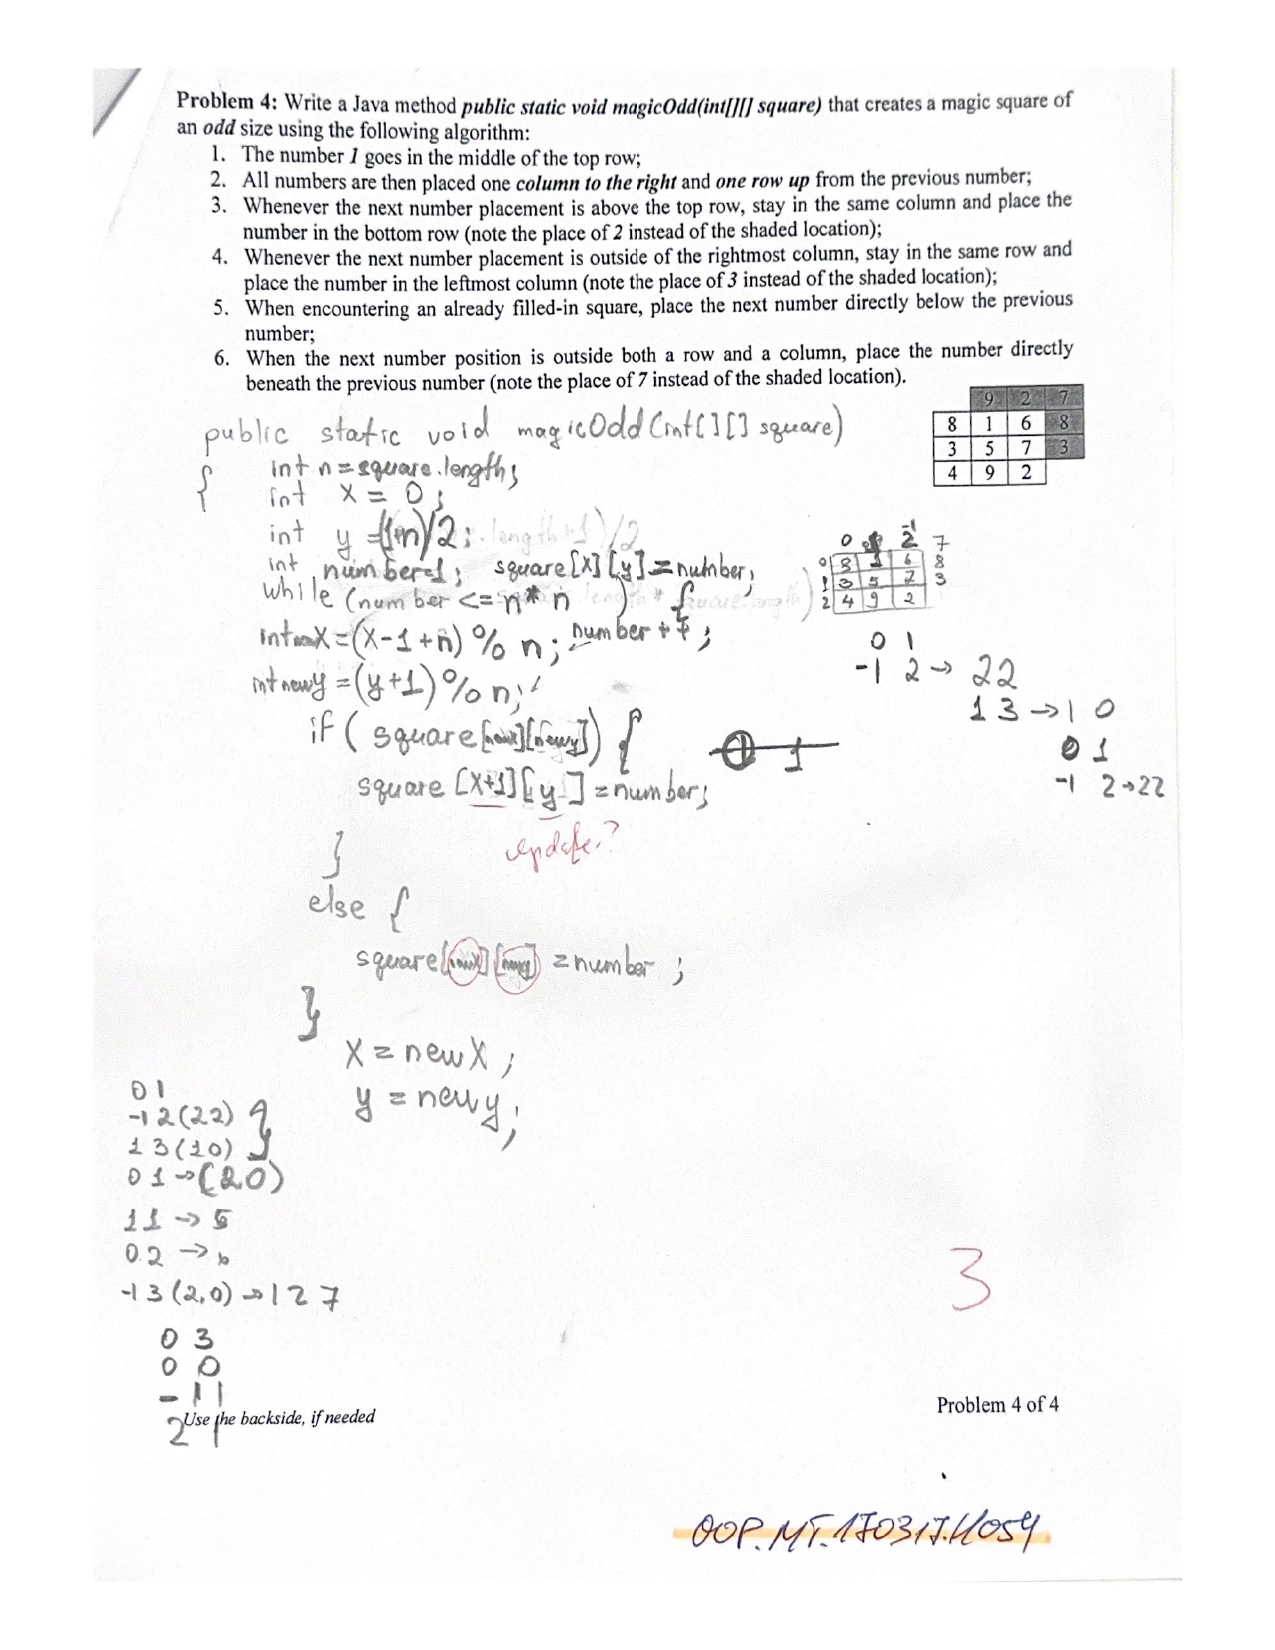 Problem 4: Write a Java method public static void magicOdd(int[][] square) that creates a magic square of
an odd size using the following algorithm:
1. The number 1 goes in the middle of the top row;
2. All numbers are then placed one column to the right and one row up from the previous number;
3. Whenever the next number placement is above the top row, stay in the same column and place the
number in the bottom row (note the place of 2 instead of the shaded location);
4. Whenever the next number placement is outside of the rightmost column, stay in the same row and
place the number in the leftmost column (note the place of 3 instead of the shaded location);
5. When encountering an already filled-in square, place the next number directly below the previous
number;
6. When the next number position is outside both a row and a column, place the number directly
beneath the previous number (note the place of 7 instead of the shaded location).
9 2 7
8 1 6 8
3 5 7 3
4 9 2
public static void magicOdd(int[][] square)
{ int n=square.length;
int x = 0;
int y = (n)/2;
int number=1; square[x][y]=number;
while (number <= n*n) {
int newX=(x-1+n)%n; number++;
int newy=(y+1)%n;
if (square[newx][newy]) {
square [x+1][y]=number;
update?
}
else {
square[newx][newy] = number;
}
x = newX;
y = newy;
0 2 7
0 8 1 6 8
1 3 5 7 3
2 4 9 2
0 1
-1 2 → 22
1 3 → 1 0
0 1
-1 2→22
0 1
0 1
-1 2(22)
1 3(10)
0 1→(20)
11 → 5
02 → 6
-1 3 (2,0) → 1 2 7
0 3
0 0
-1 1
2 1
3
Use the backside, if needed
Problem 4 of 4
OOP.MT.170317.H054